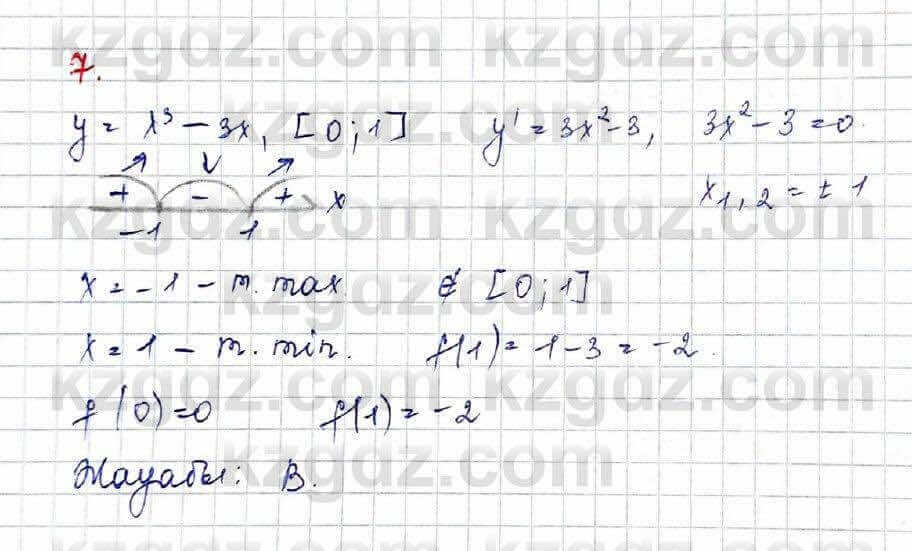 7.
y = x³ − 3x, [0;1] y' = 3x² − 3, 3x² − 3 = 0.
+ − + x
−1 1
x₁,₂ = ± 1
x = −1 − т. max ∉ [0;1]
x = 1 − т. min. f(1) = 1 − 3 = −2.
f(0) = 0 f(1) = −2
Жауабы: B.
kzgdz.com
kzgdz.com
kzgdz.com
kzgdz.com
kzgdz.com
kzgdz.com